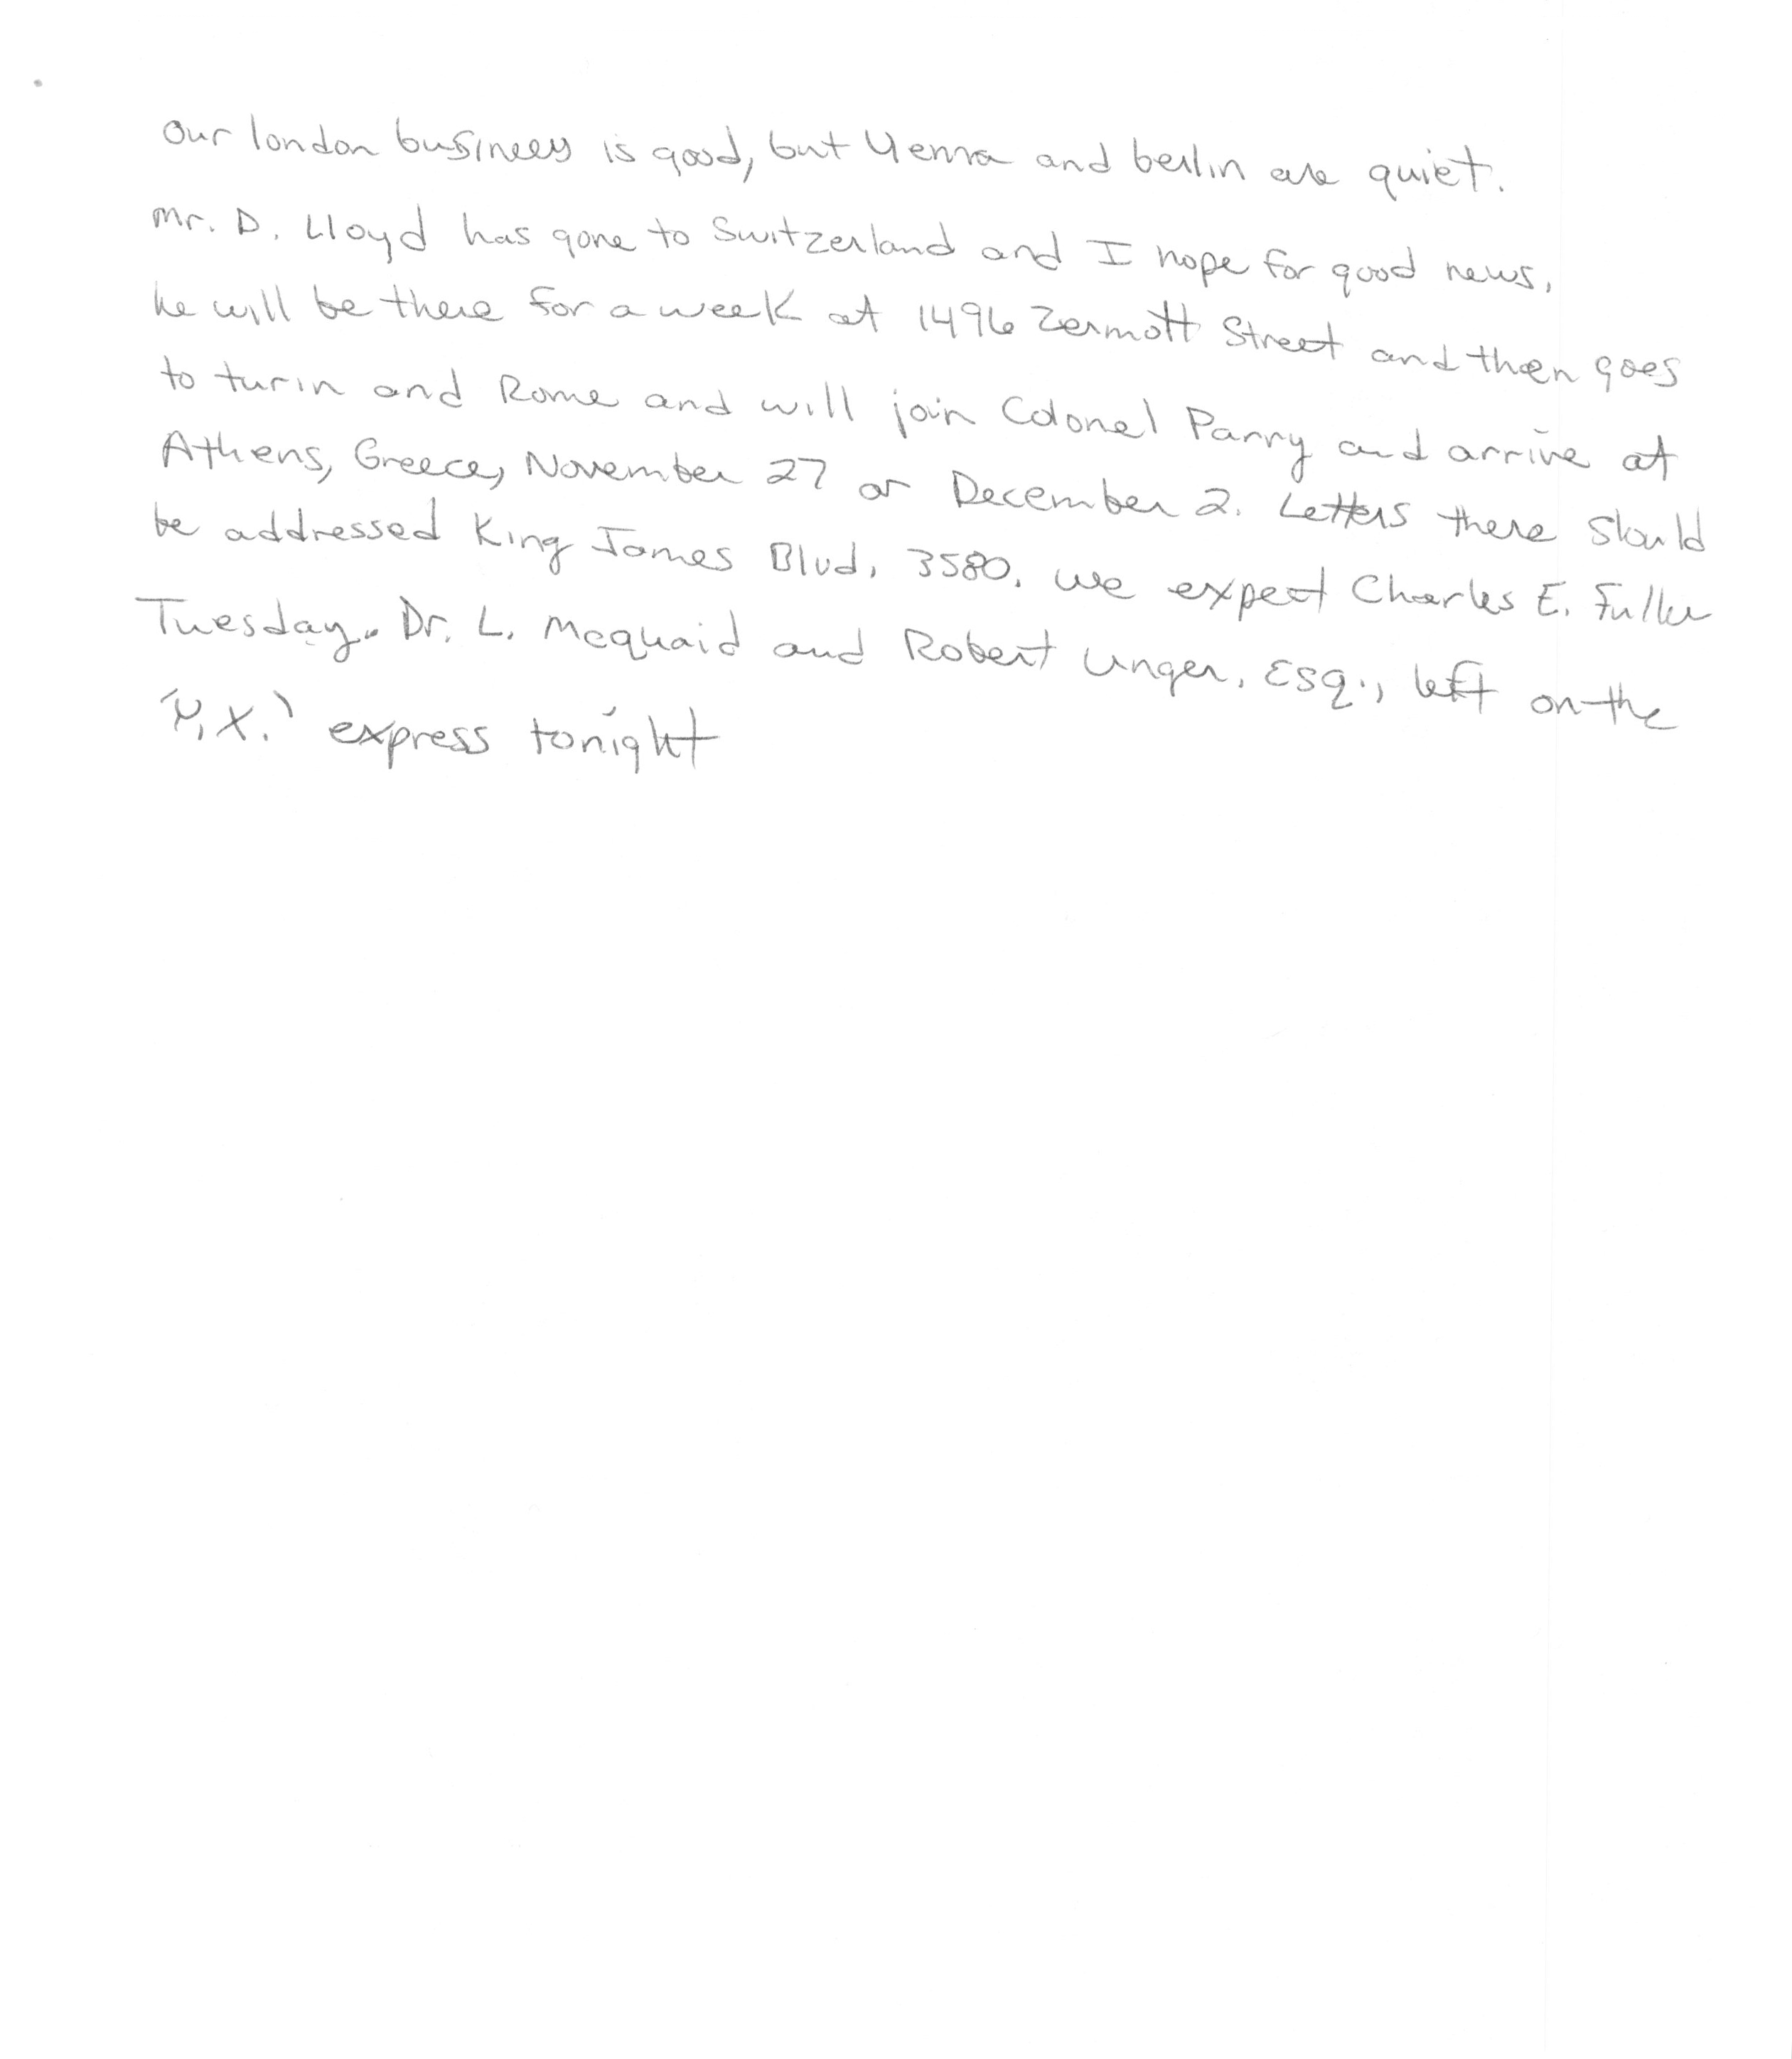 Our london business is good, but Vienna and berlin are quiet.
Mr. D. Lloyd has gone to Switzerland and I hope for good news,
he will be there for a week at 1496 Zermott Street and then goes
to turin and Rome and will join Colonel Parry and arrive at
Athens, Greece, November 27 or December 2. Letters there Should
be addressed King James Blvd. 3580. we expect Charles E. Fuller
Tuesday. Dr. L. Mcquaid and Robert Unger, Esq., left on the
'Y.X.' express tonight